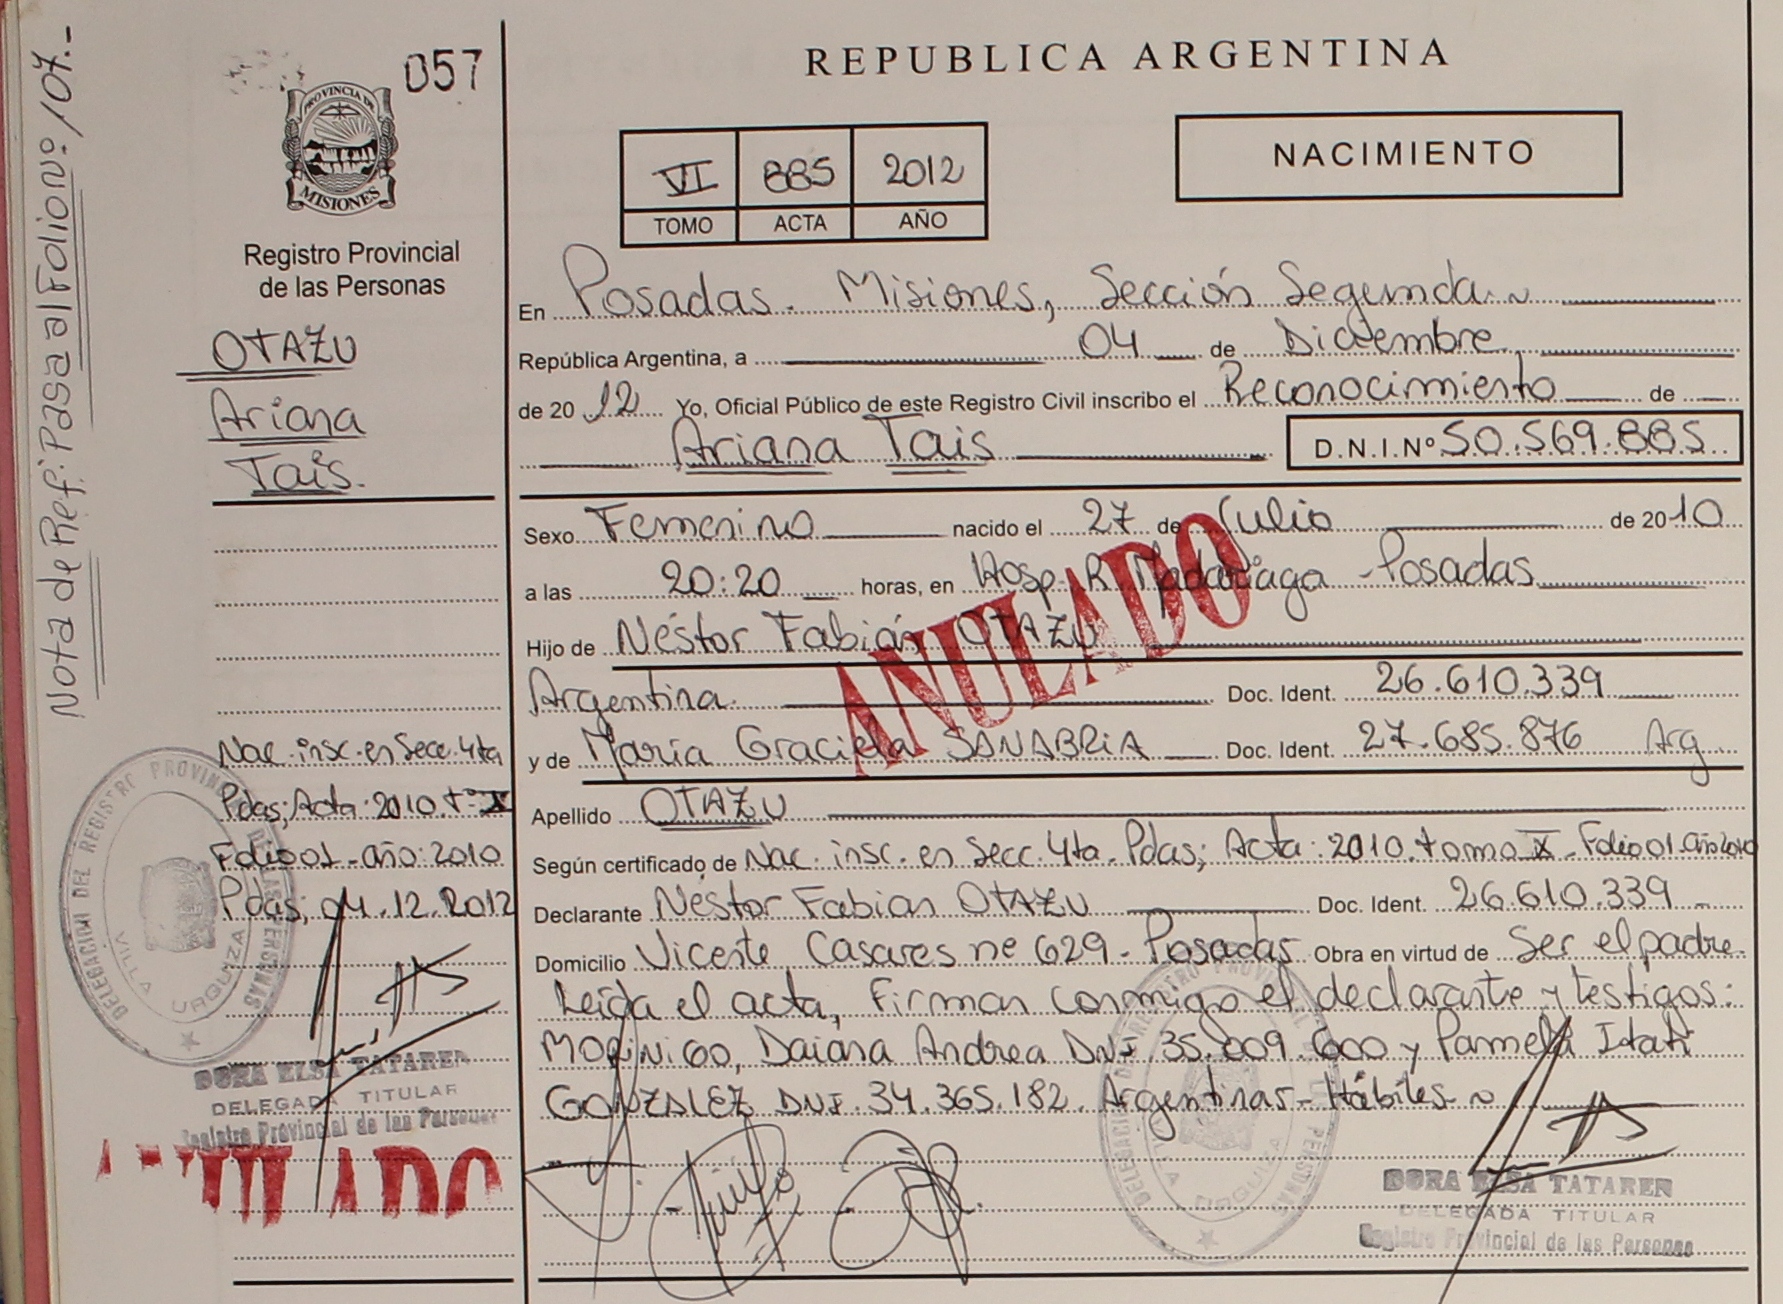 Nota de Ref: Pasa al Folio nº 107.-
057
PROVINCIA DE
MISIONES
Registro Provincial
de las Personas
OTAZU
Ariana
Tais.
Nac. insc. en Secc. 4ta
Pdas; Acta: 2010. tº X
Folio 01 - año: 2010
Pdas, 04.12.2012
DORA ELSA TATAREN
DELEGADA TITULAR
Registro Provincial de las Personas
ANULADO
REPUBLICA ARGENTINA
VI 885 2012
TOMO ACTA AÑO
NACIMIENTO
En Posadas. Misiones, Sección Segunda
República Argentina, a 04 de Diciembre
de 20 12 Yo, Oficial Público de este Registro Civil inscribo el Reconocimiento de
Ariana Tais D.N.I.Nº 50.569.885
Sexo Femenino nacido el 27 de Julio de 2010
a las 20:20 horas, en Hosp. R. Madariaga - Posadas
Hijo de Néstor Fabián OTAZU
Argentina. Doc. Ident. 26.610.339
y de María Graciela SANABRIA Doc. Ident. 27.685.876 Arg
ANULADO
Apellido OTAZU
Según certificado de Nac. insc. en Secc. 4ta. Pdas; Acta: 2010. tomo X - Folio 01. año 2010
Declarante Néstor Fabian OTAZU Doc. Ident. 26.610.339
Domicilio Vicente Casares nº 629 - Posadas Obra en virtud de Ser el padre.
Leída el acta, firman conmigo el declarante y testigos:
MOŔINIGO, Daiana Andrea DNI 35.009.600 y Pamela Itatí
GONZALEZ DNI. 34.365.182. Argentinas - Hábiles
DORA ELSA TATAREN
DELEGADA TITULAR
Registro Provincial de las Personas
DELEGACION DEL REGISTRO PROVINCIAL DE LAS PERSONAS
VILLA URQUIZA